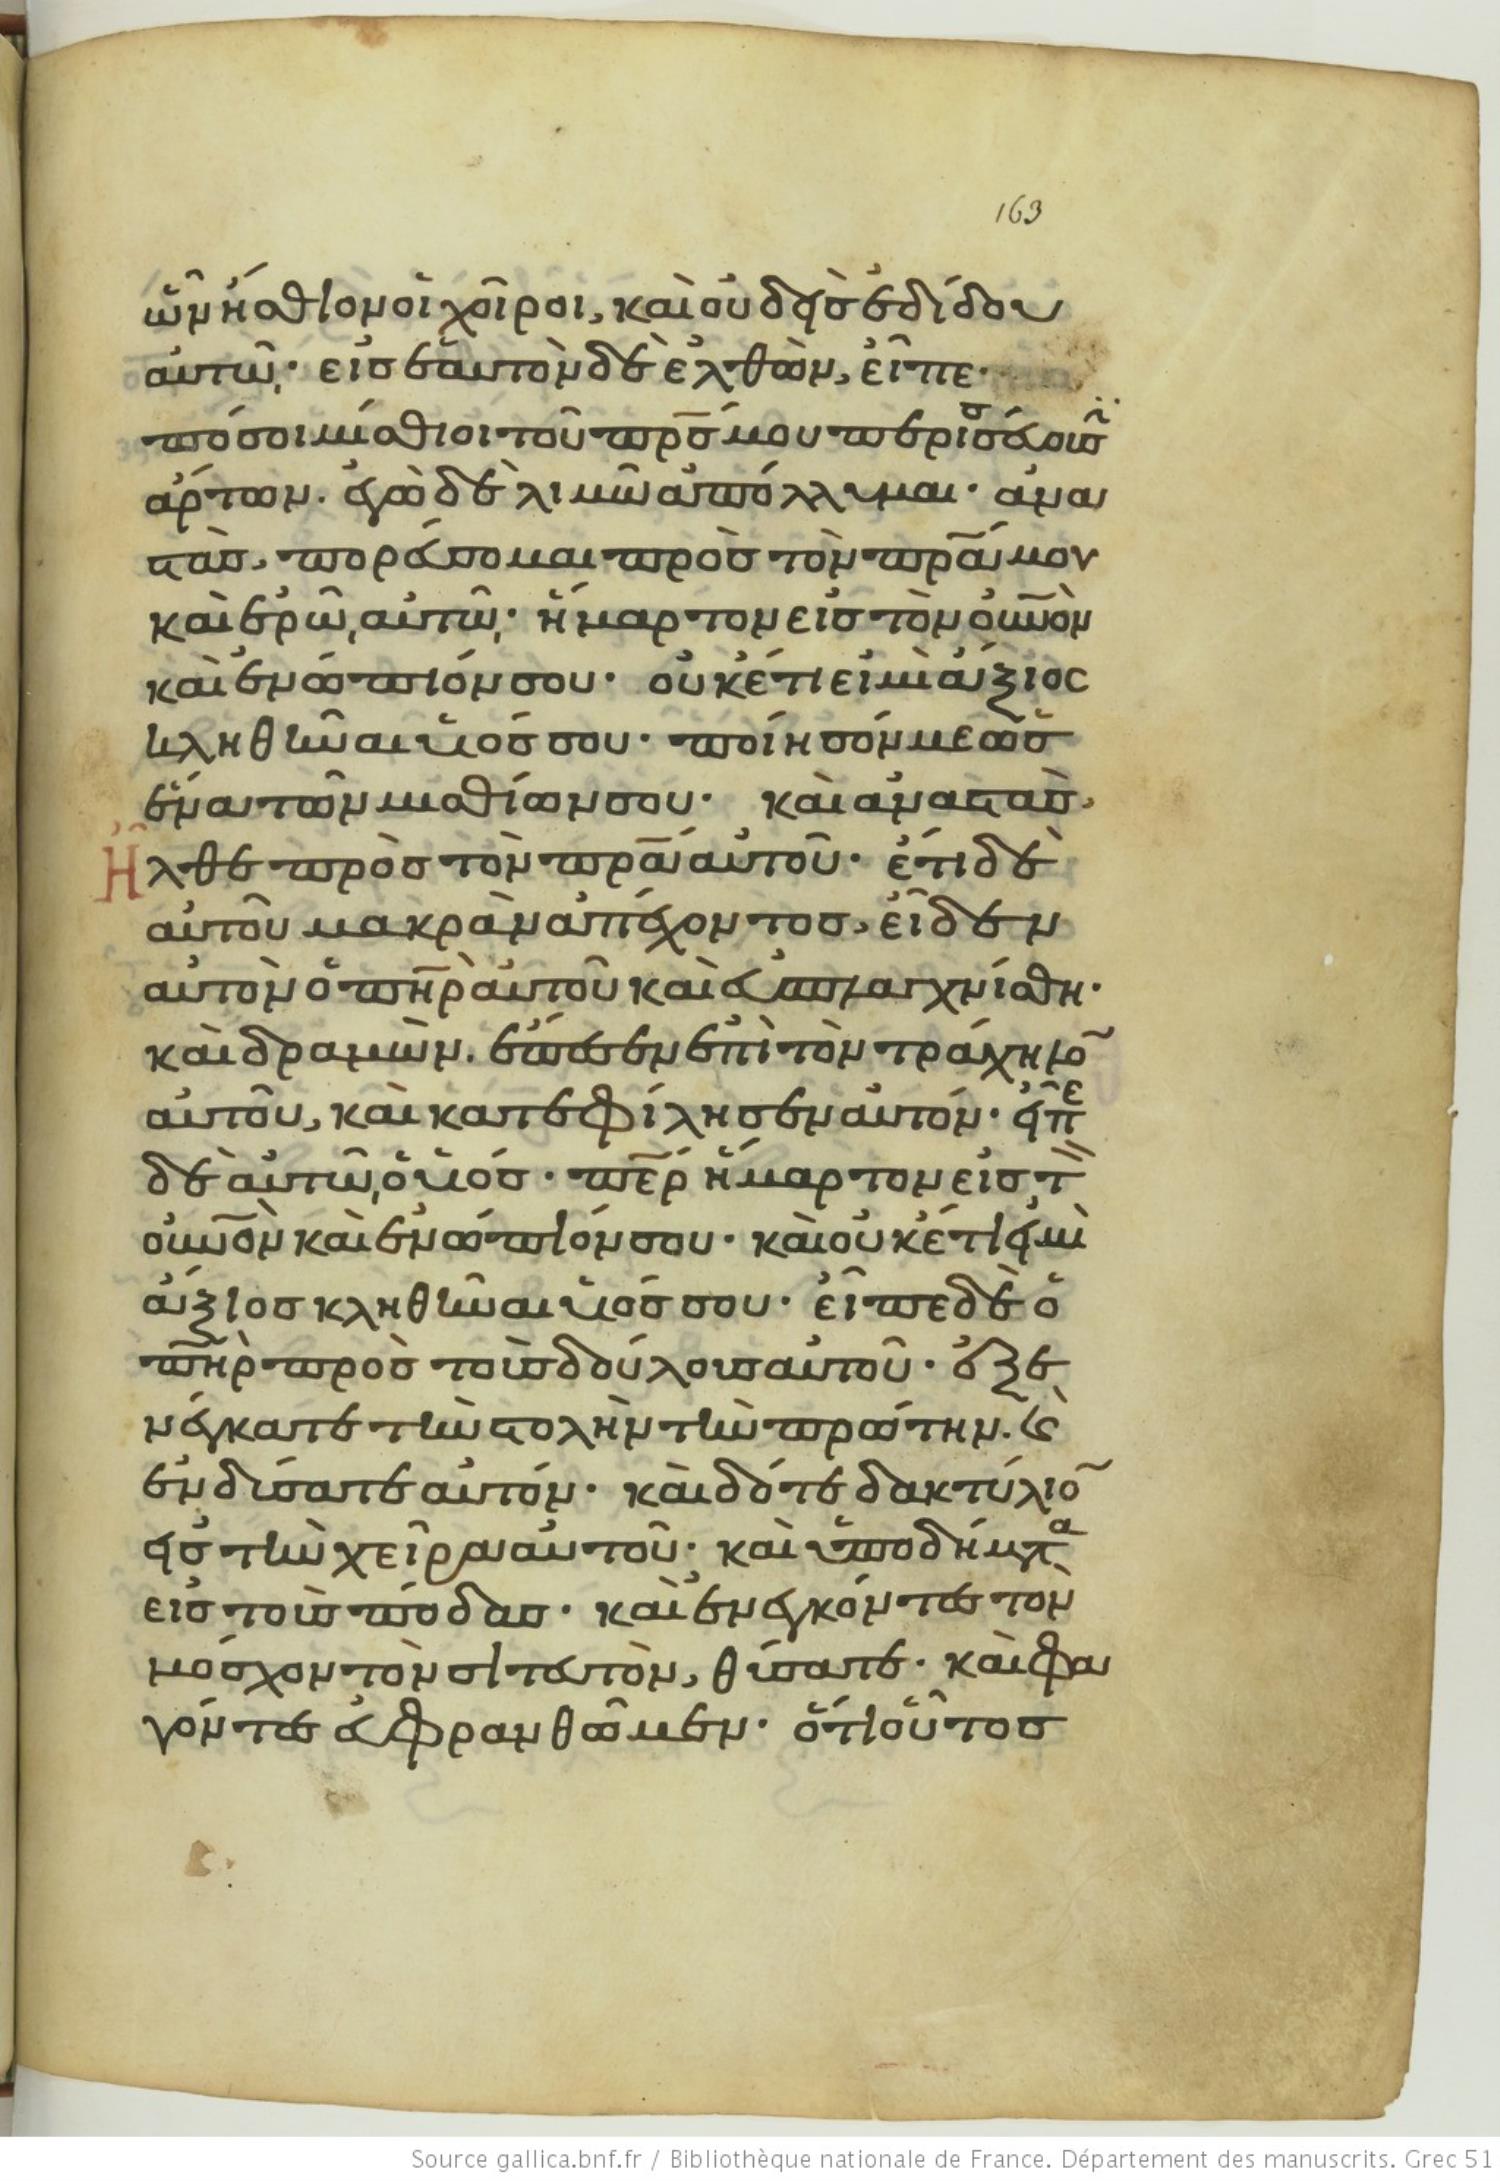 163
ὧν ἤσθιον οἱ χοῖροι, καὶ οὐδεὶς ἐδίδου
αὐτῶ· εἰς ἑαυτὸν δὲ ἐλθὼν, εἶπε·
πόσοι μίσθιοι τοῦ πρς μου περισσεύουσιν
ἄρτων. ἐγὼ δὲ λιμῶ ἀπόλλυμαι· ἀνα
στὰς, πορεύσομαι πρὸς τὸν πρα μου
καὶ ἐρῶ αὐτῶ· ἥμαρτον εἰς τὸν οὐνὸν
καὶ ἐνώπιόν σου· οὐκέτι εἰμὶ ἄξιος
κληθῆναι υἱός σου· ποίησόν με ὡς
ἕνα τῶν μισθίων σου· καὶ ἀναστὰς,
Ἦλθε πρὸς τὸν πρα αὐτοῦ· ἔτι δὲ
αὐτοῦ μακρὰν ἀπέχοντος, εἶδεν
αὐτὸν ὁ πηρ αὐτοῦ καὶ εὐσπλαγχνίσθη·
καὶ δραμὼν. ἐπέπεσεν ἐπὶ τὸν τράχηλον
αὐτοῦ, καὶ κατεφίλησεν αὐτόν· εἶπε
δὲ αὐτῶ ὁ υἱός· περ ἥμαρτον εἰς τὸν
οὐνὸν καὶ ἐνώπιόν σου· καὶ οὐκέτι εἰμὶ
ἄξιος κληθῆναι υἱός σου· εἶπε δὲ ὁ
πηρ πρὸς τοὺς δούλους αὐτοῦ· ἐξε
νέγκατε τὴν στολὴν τὴν πρώτην. καὶ
ἐνδύσατε αὐτόν· καὶ δότε δακτύλιον
εἰς τὴν χεῖρα αὐτοῦ· καὶ ὑποδήματα
εἰς τοὺς πόδας· καὶ ἐνεγκόντες τὸν
μόσχον τὸν σιτευτὸν, θύσατε· καὶ φα
γόντες εὐφρανθῶμεν· ὅτι οὗτος
Source gallica.bnf.fr / Bibliothèque nationale de France. Département des manuscrits. Grec 51